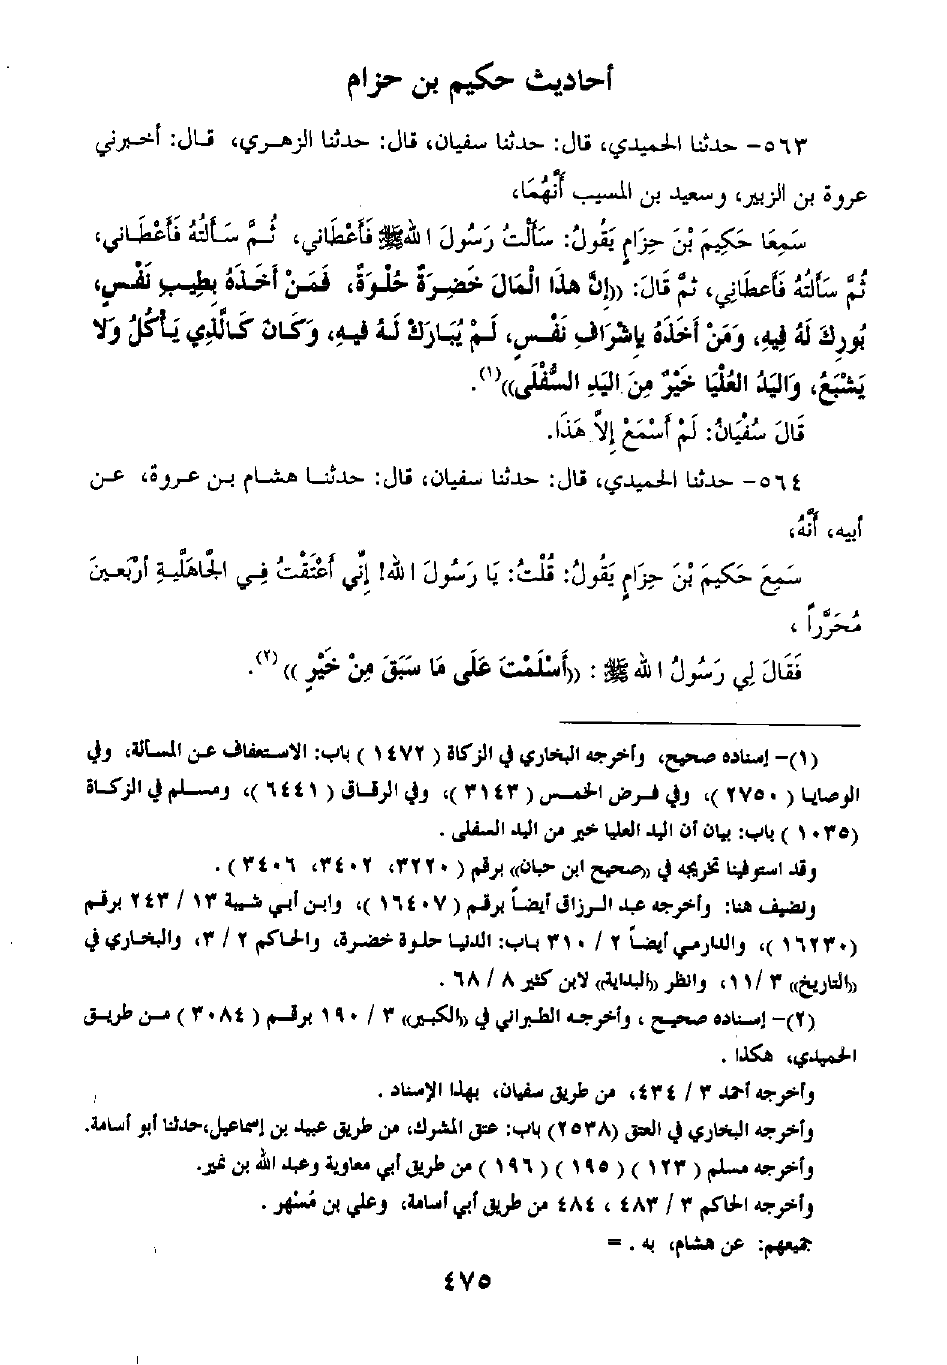 أحاديث حكيم بن حزام
٥٦٣- حدثنا الحميدي، قال: حدثنا سفيان، قال: حدثنا الزهري، قال: أخبرني
عروة بن الزبير، وسعيد بن المسيب أَنَّهُمَا،
سَمِعَا حَكِيمَ بْنَ حِزَامٍ يَقُولُ: سَأَلْتُ رَسُولَ اللهِ ﷺ فَأَعْطَاني، ثُمَّ سَأَلتُهُ فَأَعْطَاني،
ثُمَّ سَأَلتُهُ فَأَعطَانِي، ثمَّ قَالَ: ((إِنَّ هَذَا الْمَالَ خَضِرَةٌ حُلْوَةٌ، فَمَنْ أَخَذَهُ بِطِيبِ نَفْسٍ،
بُورِكَ لَهُ فِيهِ، وَمَنْ أَخَذَهُ بإِشْرَافِ نَفْسٍ، لَمْ يُبَارَكْ لَهُ فِيهِ، وَكَانَ كَالَّذِي يَأْكُلُ وَلا
يَشْبَعُ، وَاليَدُ العُلْيَا خَيْرٌ مِنَ اليَدِ السُّفْلَى))(١).
قَالَ سُفْيَانُ: لَمْ أَسْمَعْ إِلاَّ هَذَا.
٥٦٤- حدثنا الحميدي، قال: حدثنا سفيان، قال: حدثنا هشام بن عروة، عن
أبيه، أَنَّهُ،
سَمِعَ حَكِيمَ بْنَ حِزَامٍ يَقُولُ: قُلْتُ: يَا رَسُولَ اللهِ! إِنِّي أَعْتَقْتُ فِي الجَاهِلَّيةِ أَرْبَعينَ
مُحَرَّراً،
فَقَالَ لِي رَسُولُ اللهِ ﷺ : ((أَسْلَمْتَ عَلَى مَا سَبَقَ مِنْ خَيْرٍ))(٢).
(١)- إسناده صحيح، وأخرجه البخاري في الزكاة ( ١٤٧٢ ) باب: الاستعفاف عن المسألة، وفي
الوصايا ( ٢٧٥٠ )، وفي فرض الخمس ( ٣١٤٣ )، وفي الرقاق ( ٦٤٤١ )، ومسلم في الزكاة
(١٠٣٥ ) باب: بيان أن اليد العليا خير من اليد السفلى .
وقد استوفينا تخريجه في ((صحيح ابن حبان)) برقم ( ٣٢٢٠، ٣٤٠٢، ٣٤٠٦ ) .
ونضيف هنا: وأخرجه عبد الرزاق أيضاً برقم ( ١٦٤٠٧ )، وابن أبي شيبة ١٣ / ٢٤٣ برقم
(١٦٢٣٠ )، والدارمي أيضاً ٢ / ٣١٠ باب: الدنيا حلوة خضرة، والحاكم ٢ / ٣، والبخاري في
((التاريخ)) ٣ / ١١، وانظر ((البداية)) لابن كثير ٨ / ٦٨ .
(٢)- إسناده صحيح ، وأخرجه الطبراني في ((الكبير)) ٣ / ١٩٠ برقم ( ٣٠٨٤ ) من طريق
الحميدي، هكذا .
وأخرجه أحمد ٣ / ٤٣٤، من طريق سفيان، بهذا الإسناد .
وأخرجه البخاري في العتق (٢٥٣٨) باب: عتق المشرك، من طريق عبيد بن إسماعيل،حدثنا أبو أسامة.
وأخرجه مسلم ( ١٢٣ ) ( ١٩٥ ) ( ١٩٦ ) من طريق أبي معاوية وعبد الله بن نمير.
وأخرجه الحاكم ٣ / ٤٨٣ ، ٤٨٤ من طريق أبي أسامة، وعلي بن مُسْهر .
جميعهم: عن هشام، به . =
٤٧٥